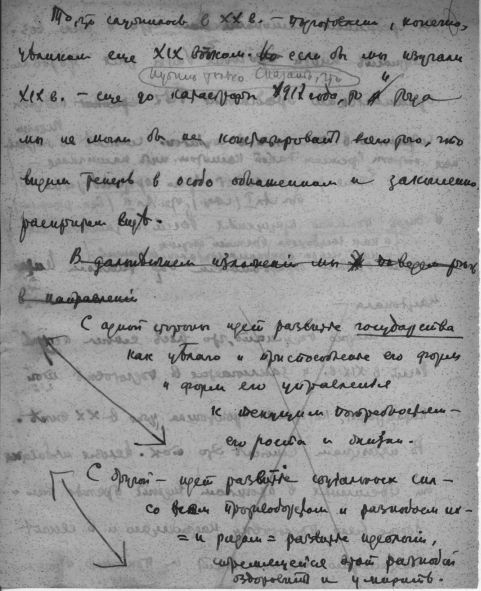 То, что случилось в XX в. – подготовлен, конечно,
целиком еще XIX веком. Но если бы мы изучали
нужно только сказать, что
XIX в. – еще до катастрофы 1917 года, то тогда
мы не могли бы не констатировать всего того, что
видим теперь в особо обнаженном и
виде.
В дальнейшем изложении мы поведем речь
в направлении
С одной стороны идет развитие государства
как целого и приспособление его форм
и форм его управления
к текущим потребностям –
его роста и жизни.
С другой – идет развитие социальных сил –
со всем и разнобоем их –
= и рядом = развитие идеологий,
стремящейся этот разнобой
оздоровить и умирить.